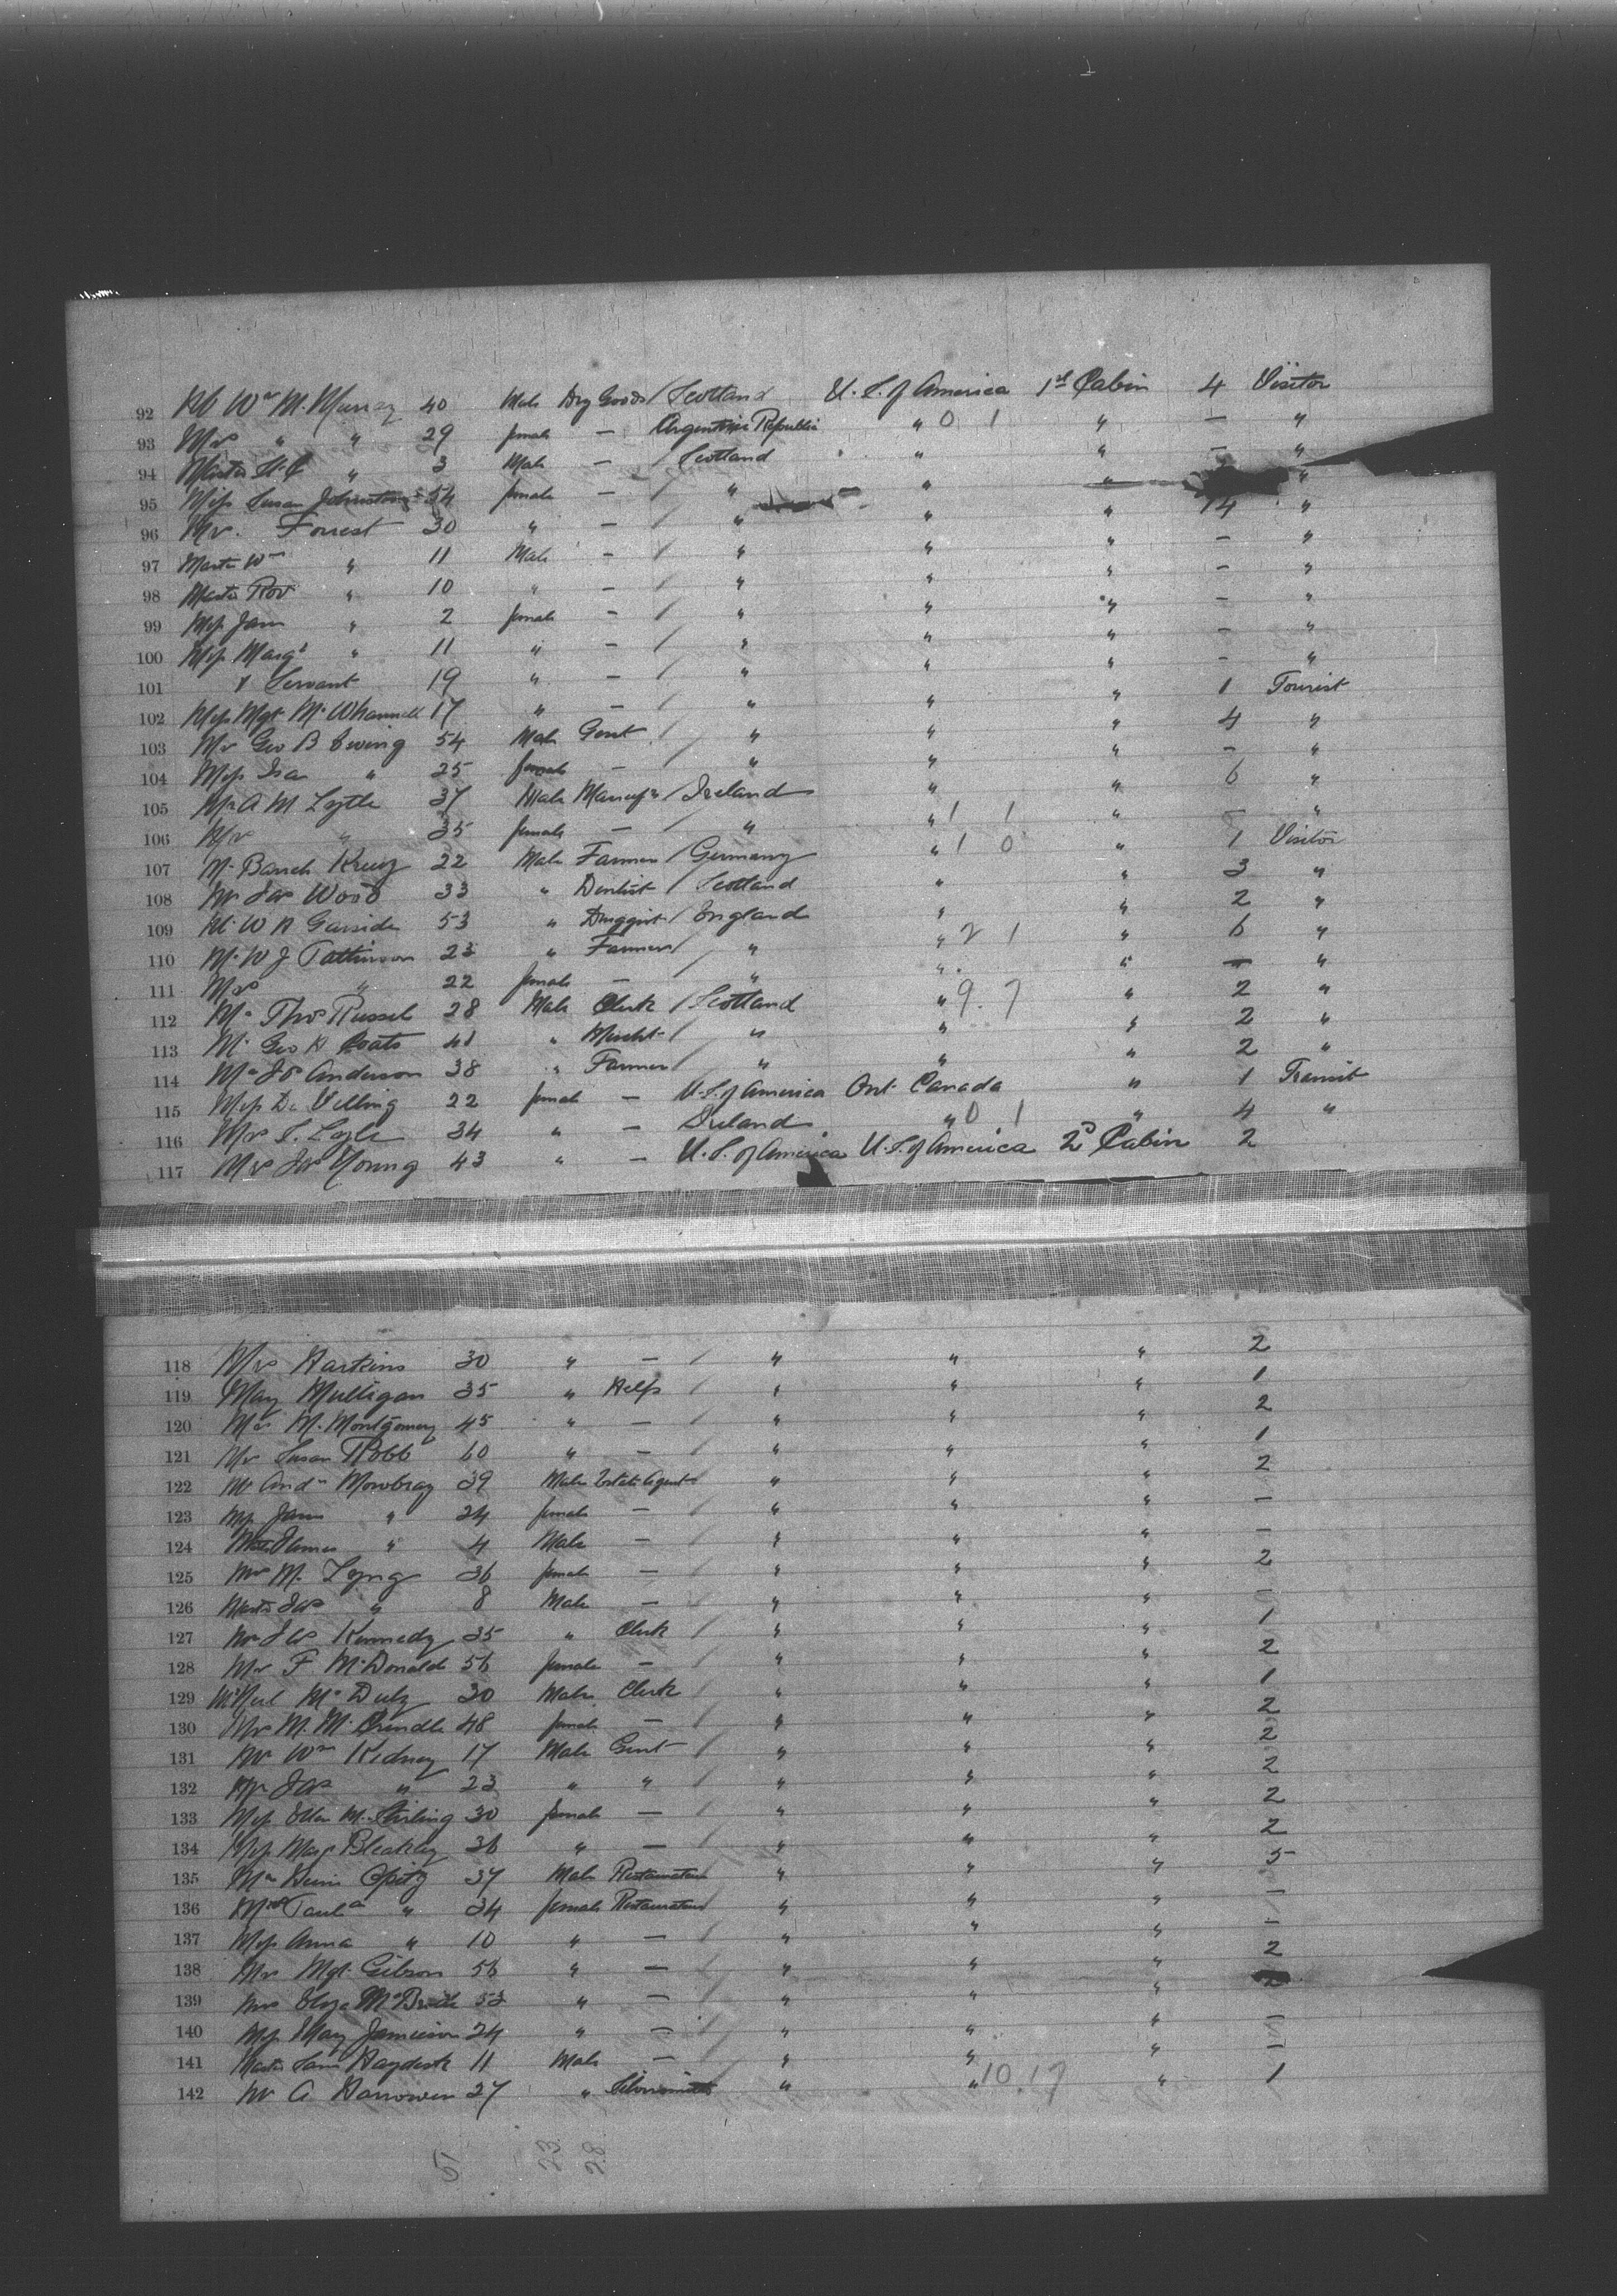 92 Mr Wm M. Murray 40 Male Dry Goods / Scotland U. S. of America 1st Cabin 4 Visitor
93 Mrs " " 29 female — Argentine Republic " 0 1 " — "
94 Master " 3 Male — / Scotland " " — "
95 Miss Susan Johnstone 54 female — / " " " "
96 Mrs. Forrest 30 " — / " " " 4 "
97 Master Wm " 11 Male — / " " " — "
98 Master Rob " 10 " — / " " " — "
99 Miss Jane " 2 female — / " " " — "
100 Miss Margt " 11 " — / " " " — "
101 & Servant 19 " — / " " " — "
102 Miss Mgt McWhannell 17 " — / " " " 1 Tourist
103 Mr Geo B Ewing 54 Male Gent / " " " 4 "
104 Miss Isa " 25 female — / " " " — "
105 Mr A M Lytle 37 Male Manufr / Ireland " " 6 "
106 Mrs " 35 female — / " " 1 1 " — "
107 Mr Kreuz 22 Male Farmer / Germany " 1 0 " 1 Visitor
108 Mr Jas Wood 33 " Dentist / Scotland " " 3 "
109 Mr W A Garside 53 " Druggist / England " " 2 "
110 Mr W J Pattinson 23 " Farmer / " " 2 1 " 6 "
111 Mrs " 22 female — / " " " — "
112 Mr Thos Russel 28 Male Clerk / Scotland " 9. 7 " 2 "
113 Mr Geo A Coats 41 " Mercht / " " " 2 "
114 Mr Anderson 38 " Farmer / " " " 2 "
115 Miss De Villing 22 female — U.S. of America Ont. Canada " 1 Transit
116 Mrs S. Lyle 34 " — Ireland " 0 1 " 4 "
117 Mrs Jas Young 43 " — U. S. of America U. S. of America 2d Cabin 2
118 Mrs Harkins 30 " — / " " " 2
119 May Mulligan 35 " Help / " " " 1
120 Mrs M. Montgomery 45 " — / " " " 2
121 Mrs Susan Robb 60 " — / " " " 1
122 Mr Andw Mowbray 39 Male Estate Agent / " " " 2
123 Jane " 24 female — / " " " —
124 Master " 4 Male — / " " " —
125 Mrs M. Lyng 36 female — / " " " 2
126 Master Jas " 8 Male — / " " " —
127 Mr Kennedy 35 " Clerk / " " " 1
128 Mrs F McDonald 56 female — / " " " 2
129 Mr Neil 30 Male Clerk / " " " 1
130 Mrs M. McCrindle 48 female — / " " " 2
131 Mr Wm Kidney 17 Male Gent / " " " 2
132 Mr Jas " 23 " " / " " " 2
133 Miss Ellen M. Stirling 30 female — / " " " 2
134 Miss Marg Bleakley 36 " — / " " " 2
135 Mr Opitz 37 Male Restaurateur " " " 5
136 Mrs Paula " 34 female Restaurateur " " " —
137 Miss Anna " 10 " — / " " " —
138 Mrs Mgt. Gibson 56 " — / " " " 2
139 Mrs Eliza McBride 53 " — / " " "
140 Miss May Jamieson 24 " — / " " " —
141 Master Haydock 11 Male — / " " " —
142 Mr A. 27 " Silversmith " " 10.17 " 1
51 23 28